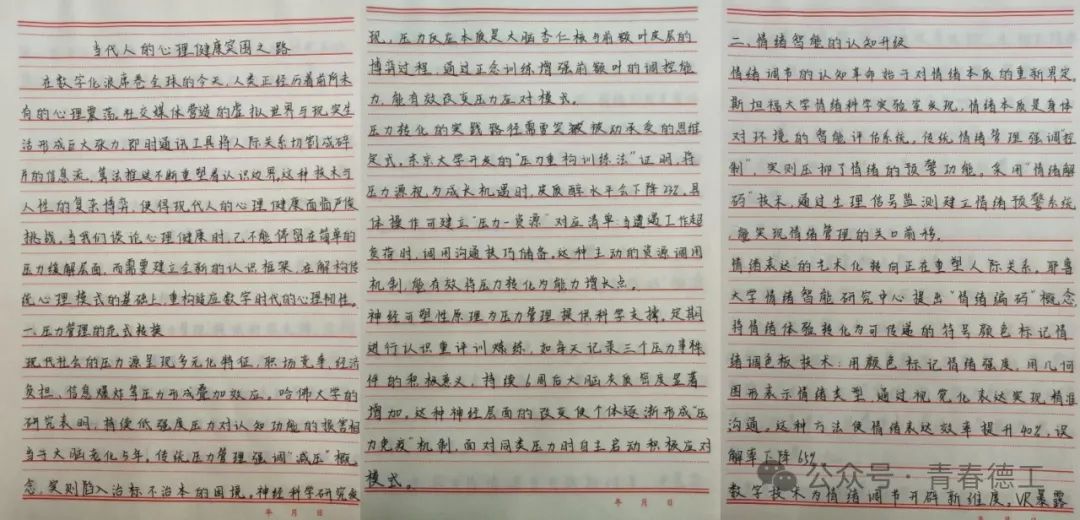 当代人的心理健康突围之路
在数字化浪席卷全球的今天,人类正经历着前所未
有的心理震荡。社交媒体营造的虚拟世界与现实生
活形成巨大张力,即时通讯工具将人际关系切割成碎
片的信息流,算法推送不断重塑着认识边界。这种技术与
人性的复杂博弈,使得现代人的心理健康面临严峻
挑战。当我们谈论心理健康时,已不能停留在简单的
压力缓解层面,而需要建立全新的认识框架,在解构传
统心理模式的基础上,重构适应数字时代的心理韧性。
一.压力管理的范式转换
现代社会的压力源呈现多元化特征,职场竞争、经济
负担、信息爆炸等压力形成叠加效应。哈佛大学的
研究表明,持续低强度压力对认知功能的损害相
当于大脑老化5年。传统压力管理强调"减压"概
念,实则陷入治标不治本的困境。神经科学研究发
年 月 日
现,压力反应本质是大脑杏仁核与前额叶皮层的
博弈过程,通过正念训练增强前额叶的调控能
力,能有效改变压力应对模式。
压力转化的实践路径需要突破被动承受的思维
定式。东京大学开发的"压力重构训练法"证明,将
压力源视为成长机遇时,皮质醇水平会下降23%。具
体操作可建立"压力-资源"对应清单:当遭遇工作超
负荷时,调用沟通技巧储备。这种主动的资源调用
机制,能有效将压力转化为能力增长点。
神经可塑性原理为压力管理提供科学支撑。定期
进行认识重评训练,如每天记录三个压力事件
件的积极意义,持续6周后大脑灰质密度显著
增加。这种神经层面的改变使个体逐渐形成"压
力免疫"机制,面对同类压力时自主启动积极应对
模式。
年 月 日
二.情绪智能的认知升级
情绪调节的认知革命始于对情绪本质的重新界定。
斯坦福大学情绪科学实验室发现,情绪本质是身体
对环境的智能评估系统。传统情绪管理强调控
制",实则压抑了情绪的预警功能。采用"情绪解
码"技术,通过生理信号监测建立情绪预警系统
,能实现情绪管理的关口前移。
情绪表达的艺术化转向正在重塑人际关系。耶鲁
大学情绪智能研究中心提出"情绪编码"概念
将情绪体验转化为可传递的符号颜色标记情
绪调色板技术:用颜色标记情绪强度,用几何
图形表示情绪类型,通过视觉化表达实现精准
沟通。这种方法使情绪表达效率提升40%,误
解率下降65%
数字技术为情绪调节开辟新维度。VR暴露
年 月 日
公众号·青春德工